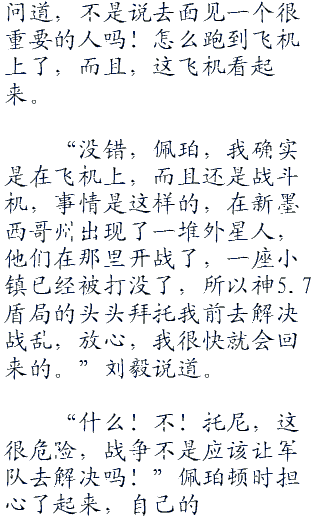 问道，不是说去面见一个很
重要的人吗！怎么跑到飞机
上了，而且，这飞机看起
来。
“没错，佩珀，我确实
是在飞机上，而且还是战斗
机，事情是这样的，在新墨
西哥州出现了一堆外星人，
他们在那里开战了，一座小
镇已经被打没了，所以神5.7
盾局的头头拜托我前去解决
战乱，放心，我很快就会回
来的。”刘毅说道。
“什么！不！托尼，这
很危险，战争不是应该让军
队去解决吗！”佩珀顿时担
心了起来，自己的